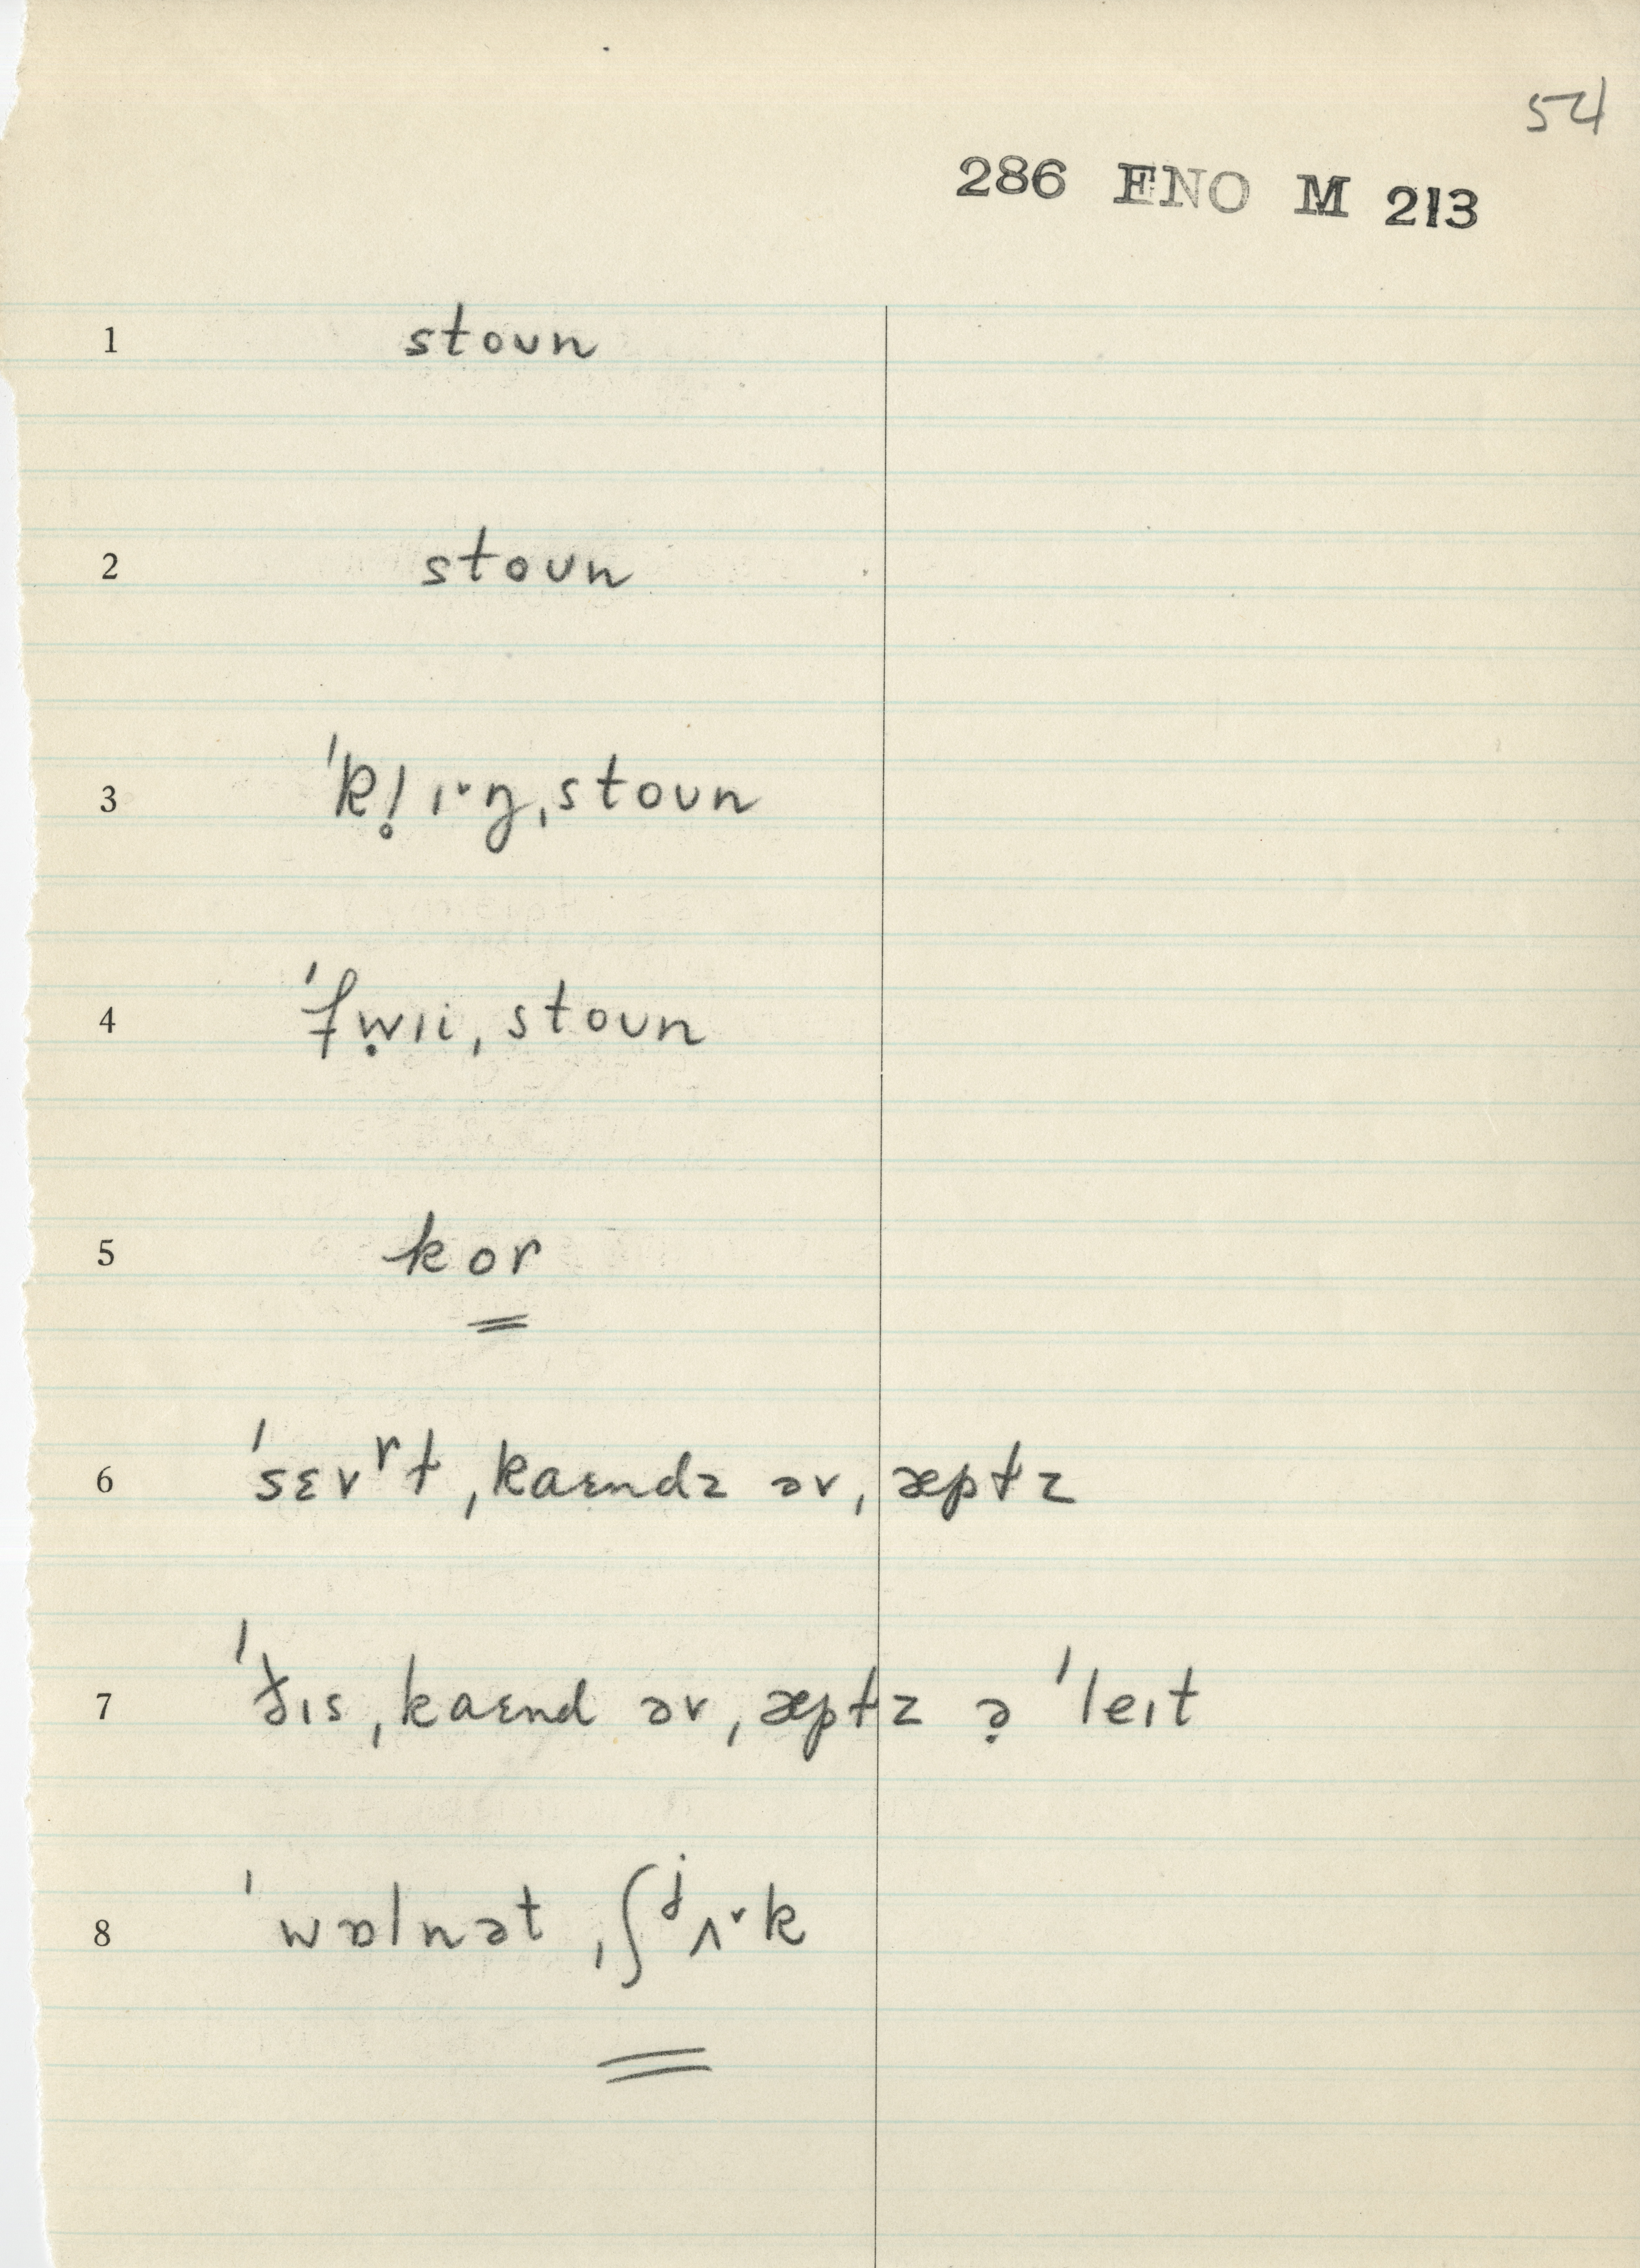 54
286 ENO M 213
1 stoʊn
2 stoʊn
3 ˈkl̥ɪ˞ŋˌstoʊn
4 ˈfẉɪiˌstoʊn
5 kor
6 ˈsɛvʳtˌkaɛndz əvˌæptz
7 ˈðɪsˌkaɛnd əvˌæptz ə̣ ˈleɪt
8 ˈwɒlnətˌʃʲʌ˅k